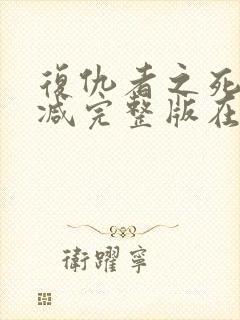 復仇者之死
減完整版在
衛躍寧